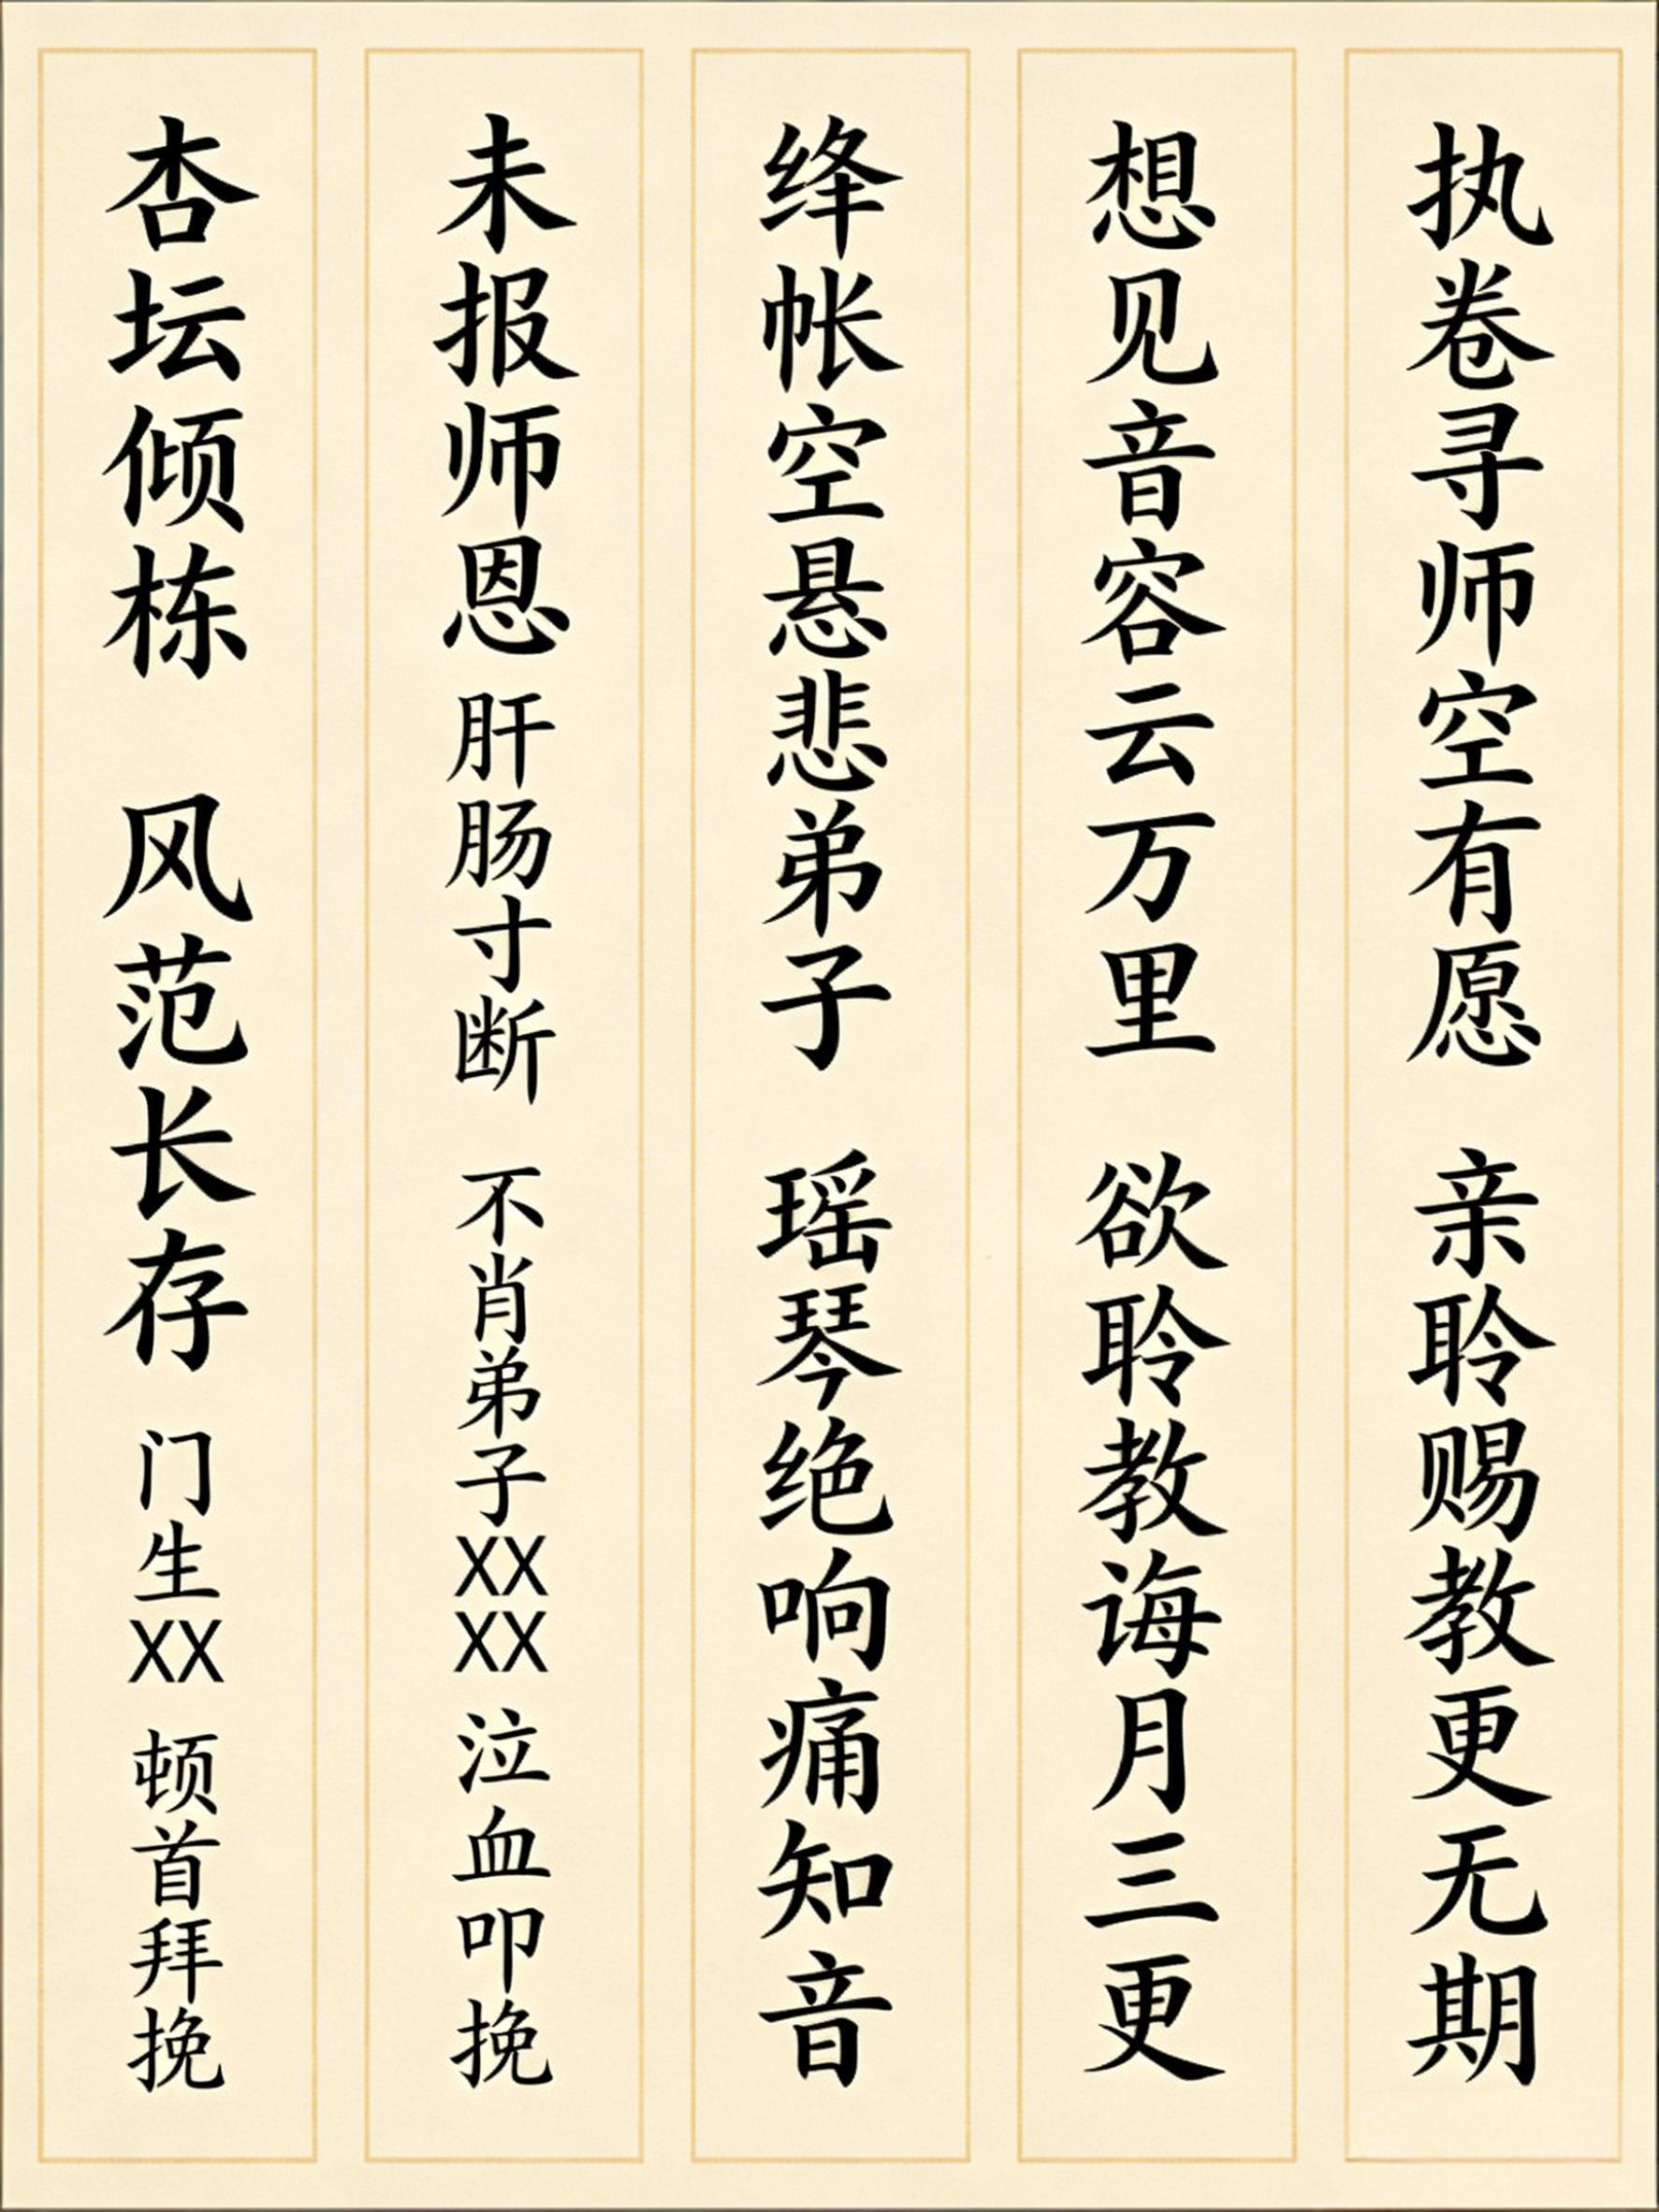 执卷寻师空有愿 亲聆赐教更无期
想见音容云万里 欲聆教诲月三更
绛帐空悬悲弟子 瑶琴绝响痛知音
未报师恩 肝肠寸断 不肖弟子XXXX 泣血叩挽
杏坛倾栋 风范长存 门生XX 顿首拜挽